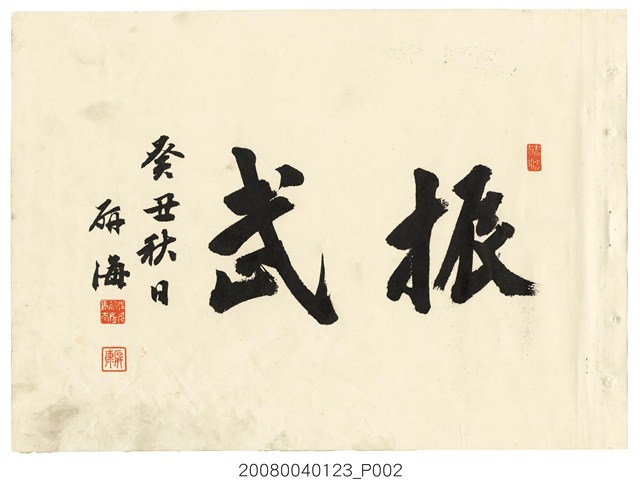 振武
癸丑秋日
研海
20080040123_P002